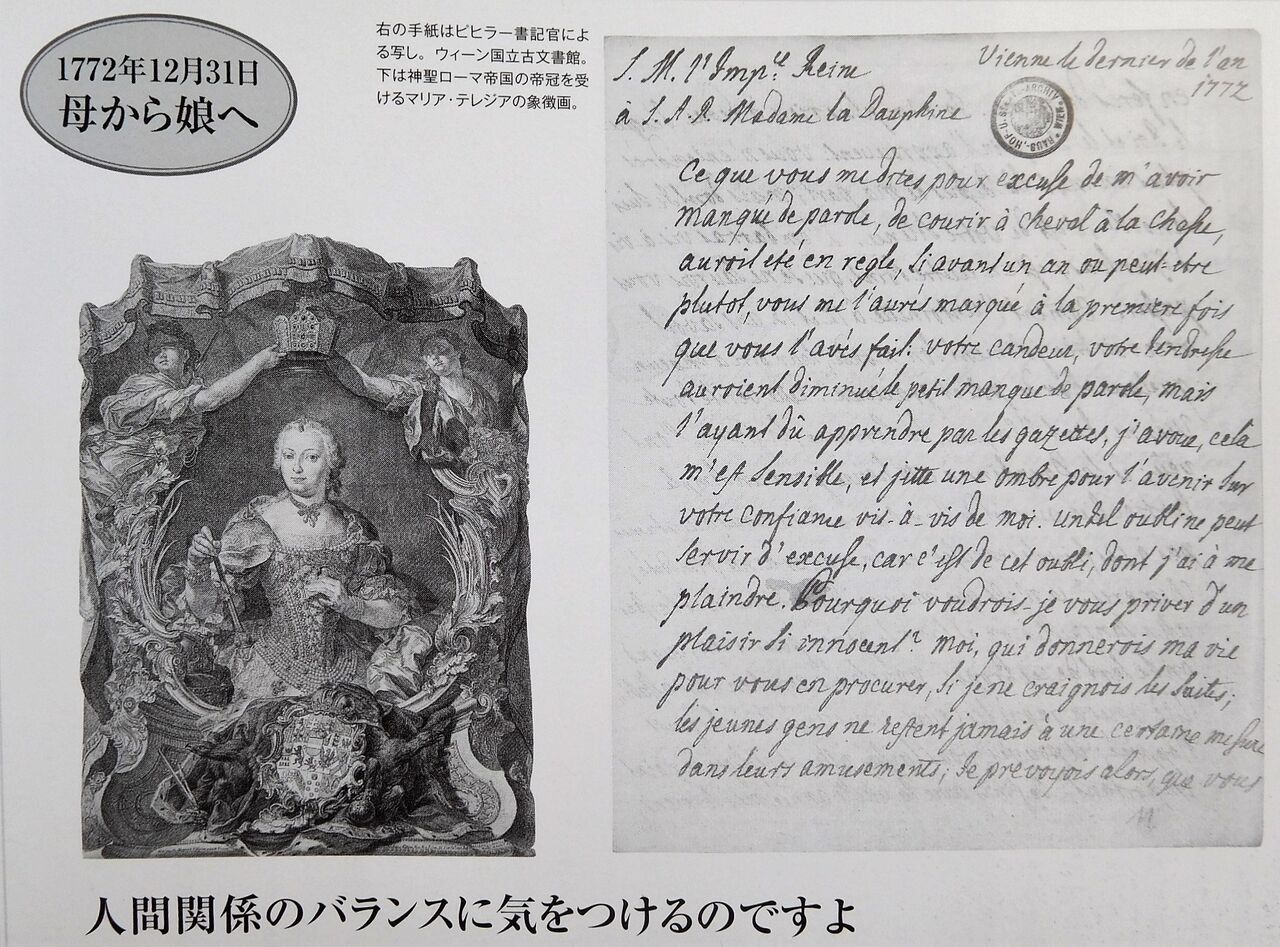 1772年12月31日
母から娘へ
右の手紙はピヒラー書記官によ
る写し。ウィーン国立古文書館。
下は神聖ローマ帝国の帝冠を受
けるマリア・テレジアの象徴画。
S. M. l'Imp.ce Reine
à S. A. R. Madame la Dauphine
Vienne le dernier de l'an
1772
Ce que vous me dites pour excuse de m'avoir
manqué de parole, de courir à cheval à la chasse,
auroit été en regle, si avant un an ou peut-etre
plutot, vous me l'aurés marqué à la premiere fois
que vous l'avés fait: votre candeur, votre tendresse
auroient diminué le petit manque de parole, mais
l'ayant dû apprendre par les gazettes, j'avoue, cela
m'est sensible, et jette une ombre pour l'avenir sur
votre confiance vis-à-vis de moi. un tel oubli ne peut
servir d'excuse, car c'est de cet oubli, dont j'ai à me
plaindre. Pourquoi voudrois-je vous priver d'un
plaisir si innocent? moi, qui donnerois ma vie
pour vous en procurer, si je ne craignois les suites;
les jeunes gens ne restent jamais à une certaine mesure
dans leurs amusements; Je prevoyois alors, que vous
人間関係のバランスに気をつけるのですよ